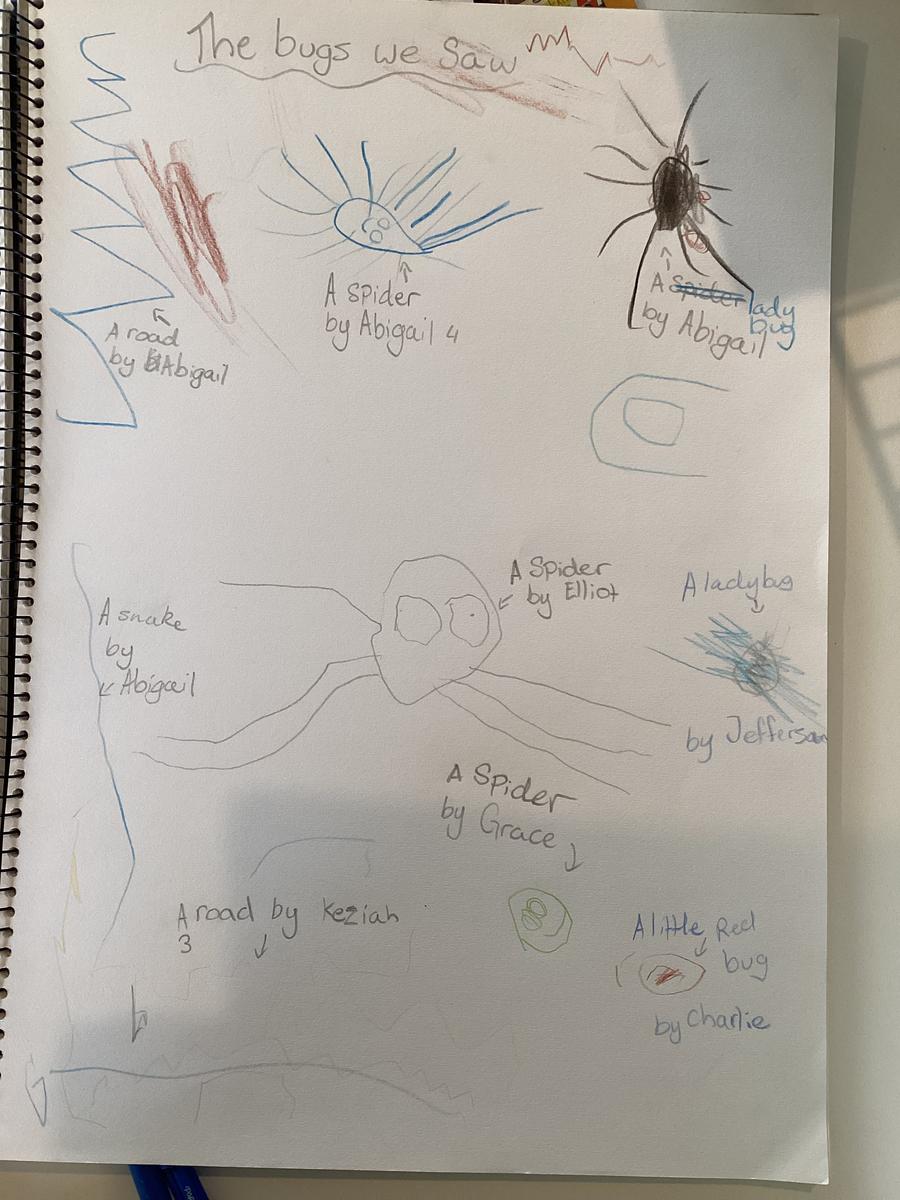 The bugs we Saw
A road
by Abigail
A spider
by Abigail 4
A spider lady
bug
by Abigail
A Spider
by Elliot
A ladybug
by Jefferson
A snake
by
Abigail
A Spider
by Grace
A road by Keziah
3
A little Red
bug
by Charlie